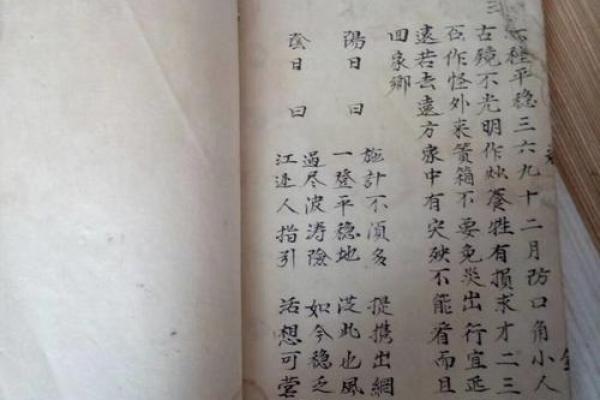 平稳三六九十二月防口角小人
古鏡不光明作炒養牲有損求才二三
石作怪外來箱不要免災出行宜遲
遠若去遠方家中有灾殃不能看而且
回家鄉
陽日曰
施計不須多 提携出網
一登平稳地 從此也風
陰日曰
過尽波涛險 如今稳乏
江边人指引 活想可营